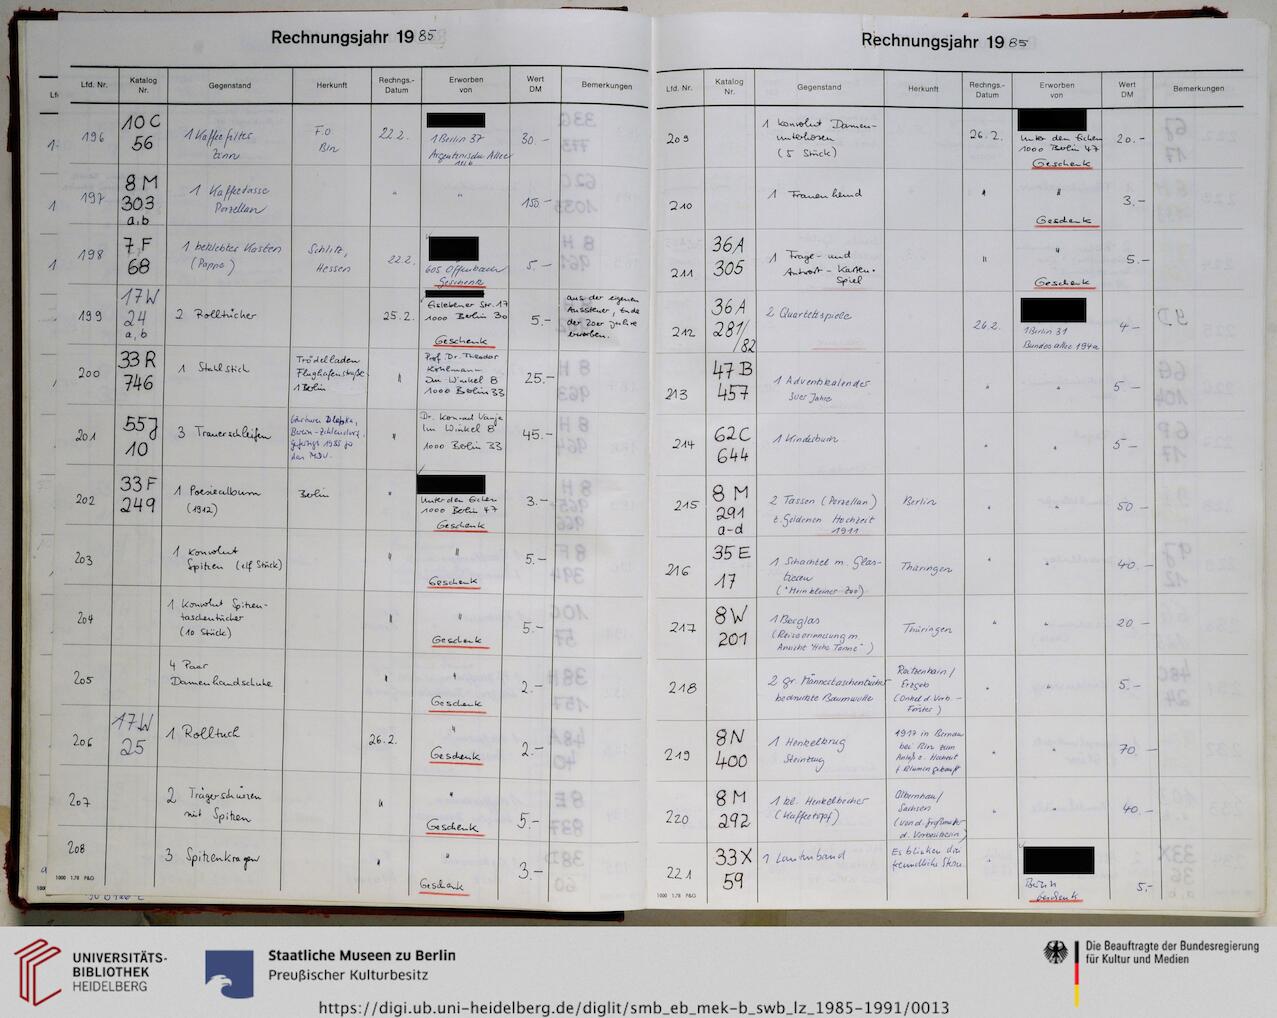 Rechnungsjahr 1985
Lfd. Nr.
Katalog Nr.
Gegenstand
Herkunft
Rechngs.-Datum
Erworben von
Wert DM
Bemerkungen
196
10 C 56
1 Kaffeefilter
Zinn
F.O.
Bln
22.2.
1 Berlin 37
Argentinische Allee
30.-
197
8 M 303 a,b
1 Kaffeetasse
Porzellan
"
"
150.-
198
7 F 68
1 beklebter Kasten
(Pappe)
Schlitz,
Hessen
22.2.
605 Offenbach
Geschenk
5.-
199
17 W 24 a,b
2 Rolltücher
25.2.
Eislebener Str. 17
1000 Berlin 30
Geschenk
5.-
aus der eigenen
Aussteuer, Ende
der 20er Jahre
erworben.
200
33 R 746
1 Stahlstich
Trödelladen
Flughafenstraße
1 Berlin
"
Prof. Dr. Theodor
Kohlmann
Im Winkel 8
1000 Berlin 33
25.-
201
55 J 10
3 Trauerschleifen
Berlin-Zehlendorf,
"
Dr. Konrad Vanja
Im Winkel 8
1000 Berlin 33
45.-
202
33 F 249
1 Poesiealbum
(1912)
Berlin
"
Unter den Eichen
1000 Berlin 47
Geschenk
3.-
203
1 Konvolut
Spitzen (elf Stück)
"
"
Geschenk
5.-
204
1 Konvolut Spitzen-
taschentücher
(10 Stück)
"
"
Geschenk
5.-
205
4 Paar
Damenhandschuhe
"
"
Geschenk
2.-
206
17 W 25
1 Rolltuch
26.2.
"
Geschenk
2.-
207
2 Trägerschürzen
mit Spitzen
"
"
Geschenk
5.-
208
3 Spitzenkragen
"
"
Geschenk
3.-
1000 1.78 P&G
Rechnungsjahr 1985
Lfd. Nr.
Katalog Nr.
Gegenstand
Herkunft
Rechngs.-Datum
Erworben von
Wert DM
Bemerkungen
209
1 Konvolut Damen-
unterhosen
(5 Stück)
26.2.
Unter den Eichen
1000 Berlin 47
Geschenk
20.-
210
1 Frauenhemd
"
"
Geschenk
3.-
211
36 A 305
1 Frage- und
Antwort-Karten-
Spiel
"
"
Geschenk
5.-
212
36 A 281/82
2 Quartettspiele
26.2.
1 Berlin 31
Bundesallee 194a
4-
213
47 B 457
1 Adventskalender
30er Jahre
"
"
5-
214
62 C 644
1 Kinderbuch
"
"
5-
215
8 M 291 a-d
2 Tassen (Porzellan)
z. Goldenen Hochzeit
1911
Berlin
"
"
50-
216
35 E 17
1 Schachtel m. Glas-
tieren
("Mein kleiner Zoo)
Thüringen
"
"
40.-
217
8 W 201
1 Becglas
(Reiseerinnerung m.
Ansicht "Hohe Tanne")
Thüringen
"
"
20-
218
2 gr. Männertaschentücher
bedruckte Baumwolle
Erzgeb
(Onkel d. Vorb.-
Förster)
"
"
5.-
219
8 N 400
1 Henkelkrug
Steinzeug
1917 in Bernau
bei Bln zum
"
"
70.-
220
8 M 292
1 kl. Henkelbecher
(Kaffeetopf)
Olbernhau/
Sachsen
(von d. Großmutter
d. Vorbesitzerin)
"
"
40.-
221
33 X 59
1 Lautenband
Es blicken die
freundliche Sterne
"
Berlin
Geschenk
5,-
1000 1.78 P&G
UNIVERSITÄTS-
BIBLIOTHEK
HEIDELBERG
Staatliche Museen zu Berlin
Preußischer Kulturbesitz
Die Beauftragte der Bundesregierung
für Kultur und Medien
https://digi.ub.uni-heidelberg.de/diglit/smb_eb_mek-b_swb_lz_1985-1991/0013